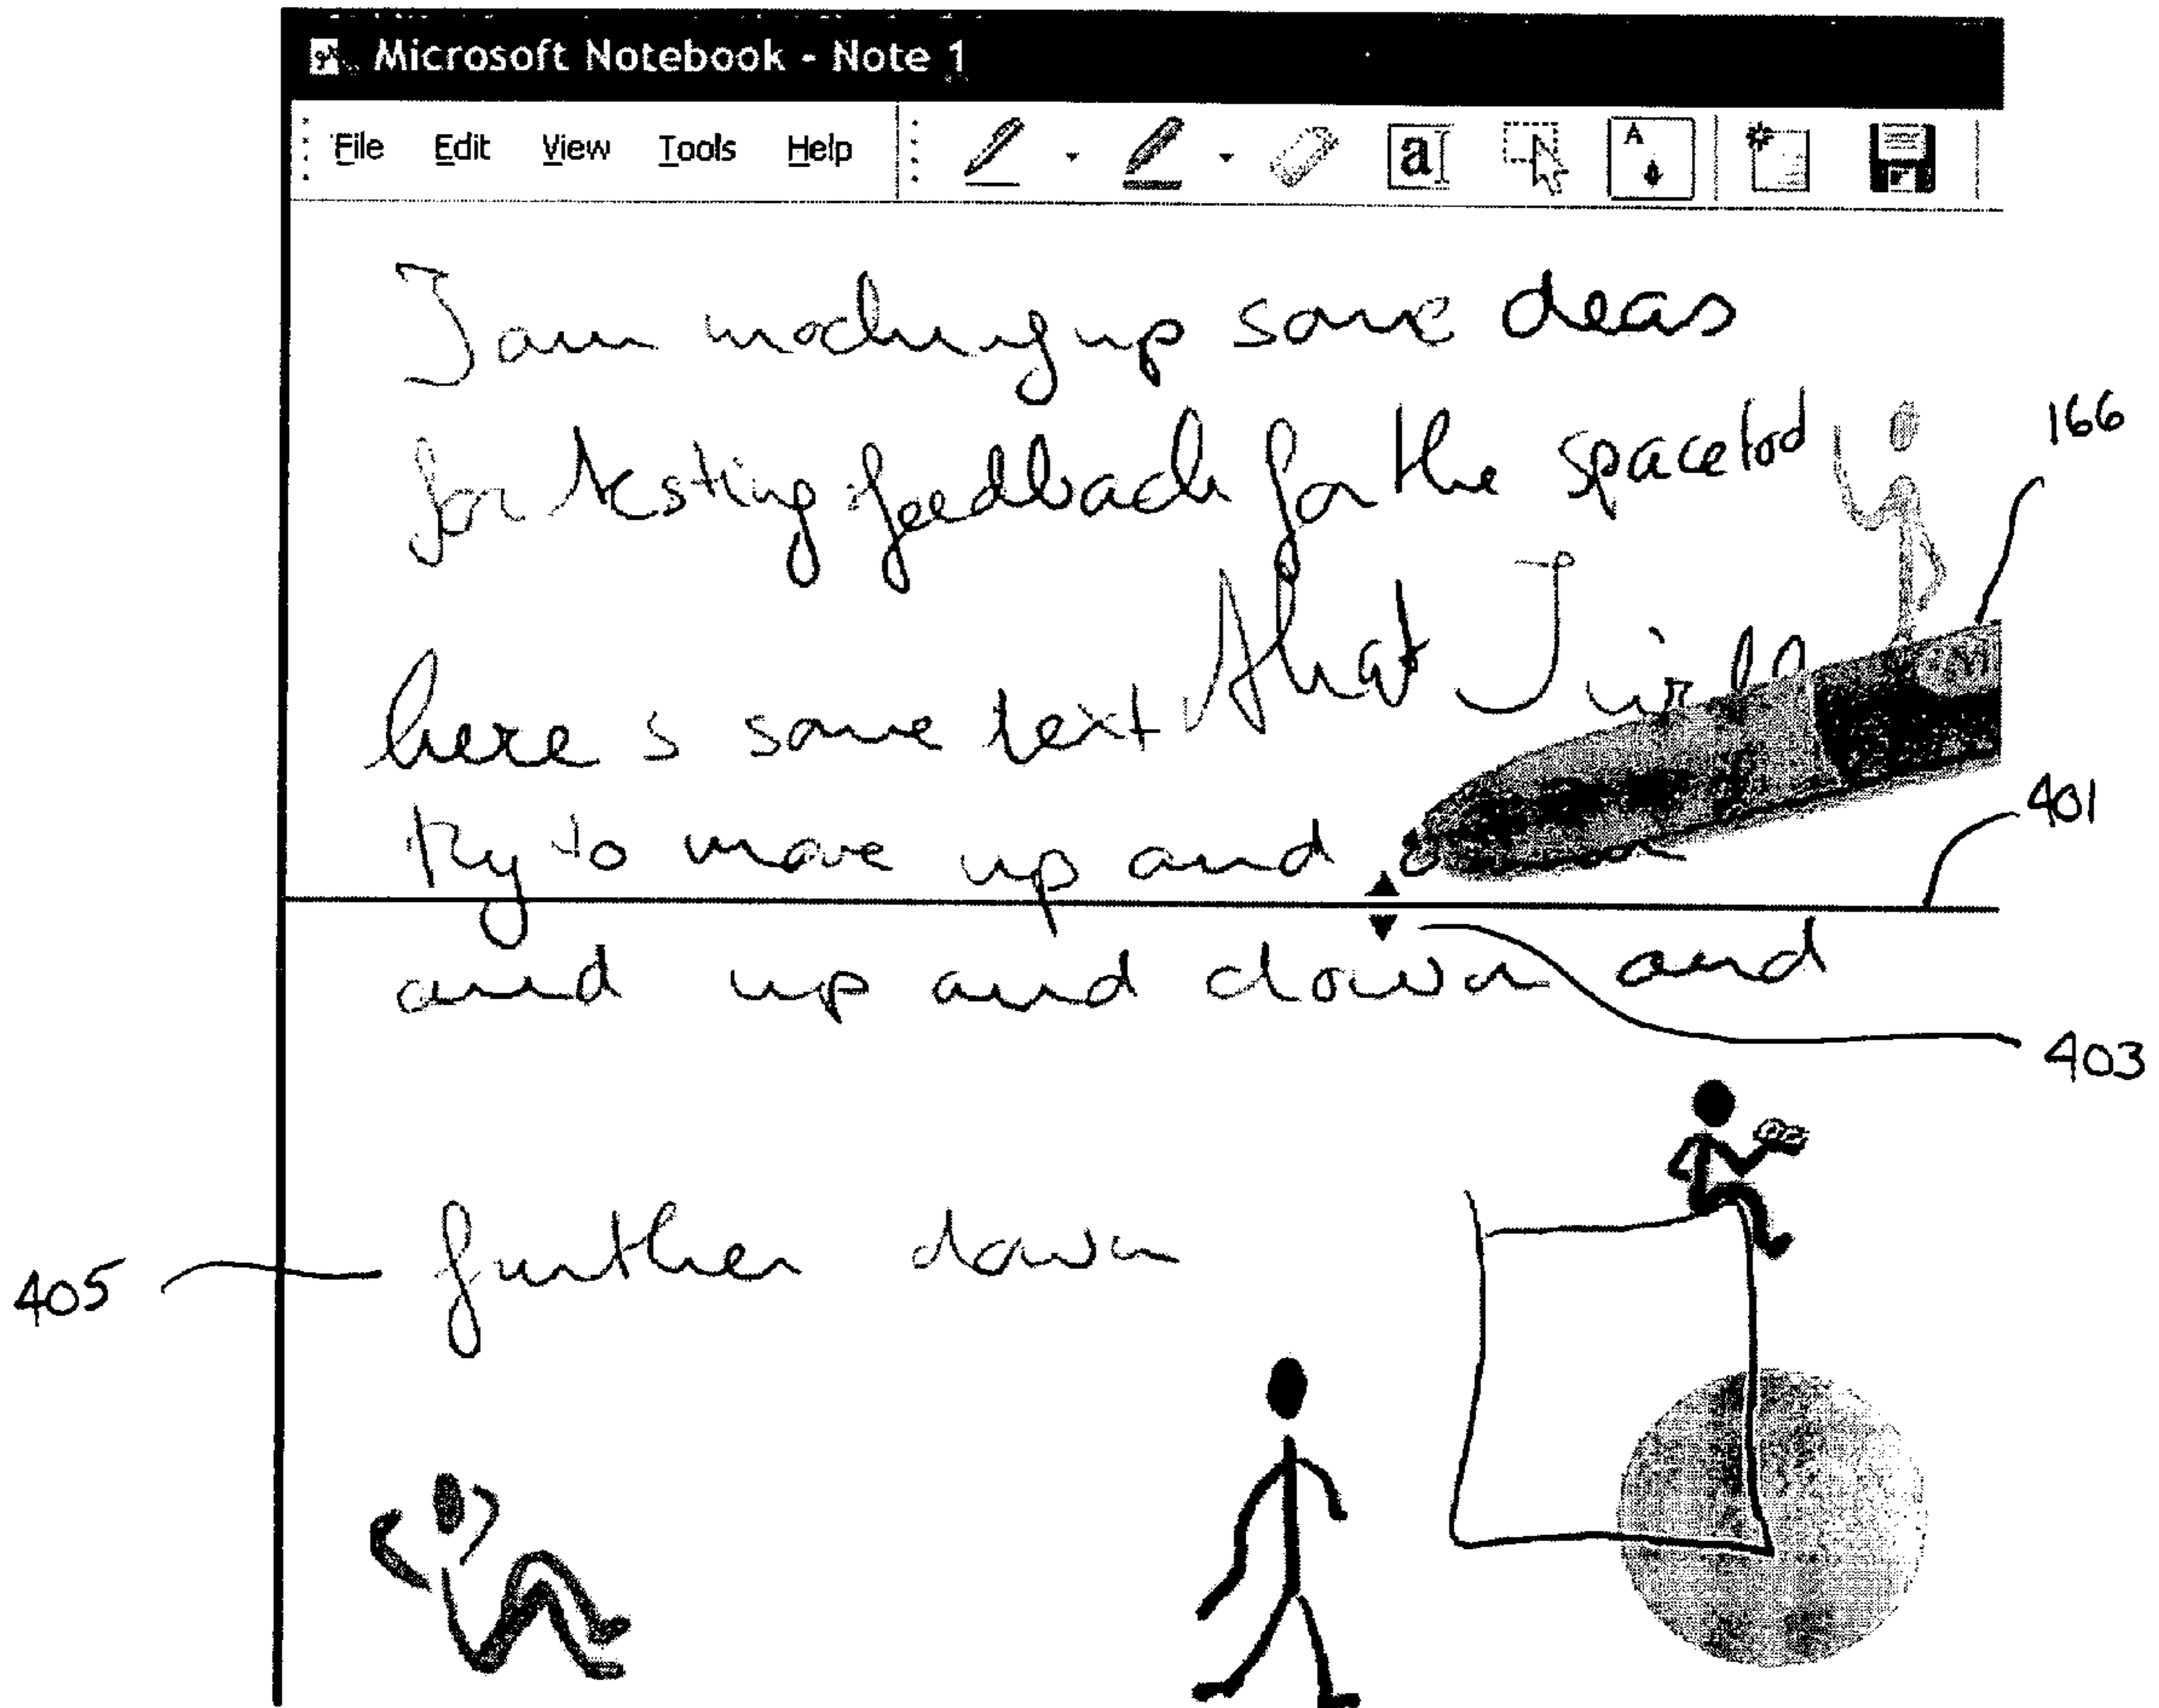 Microsoft Notebook - Note 1
File Edit View Tools Help
a
A
I am mocking up some deas
for testing feedback for the space tool
166
here s some text that I will
401
try to move up and
and up and down and
403
further down
405